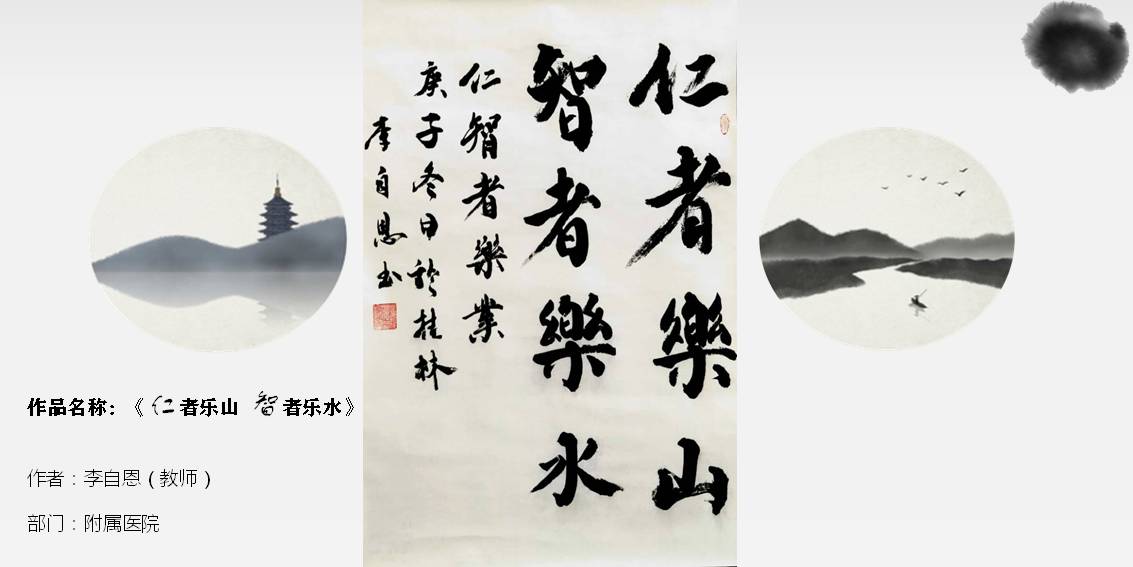 仁者樂山
智者樂水
仁智者樂業
庚子冬日於桂林
李自恩书
作品名称：《仁者乐山 智者乐水》
作者：李自恩（教师）
部门：附属医院